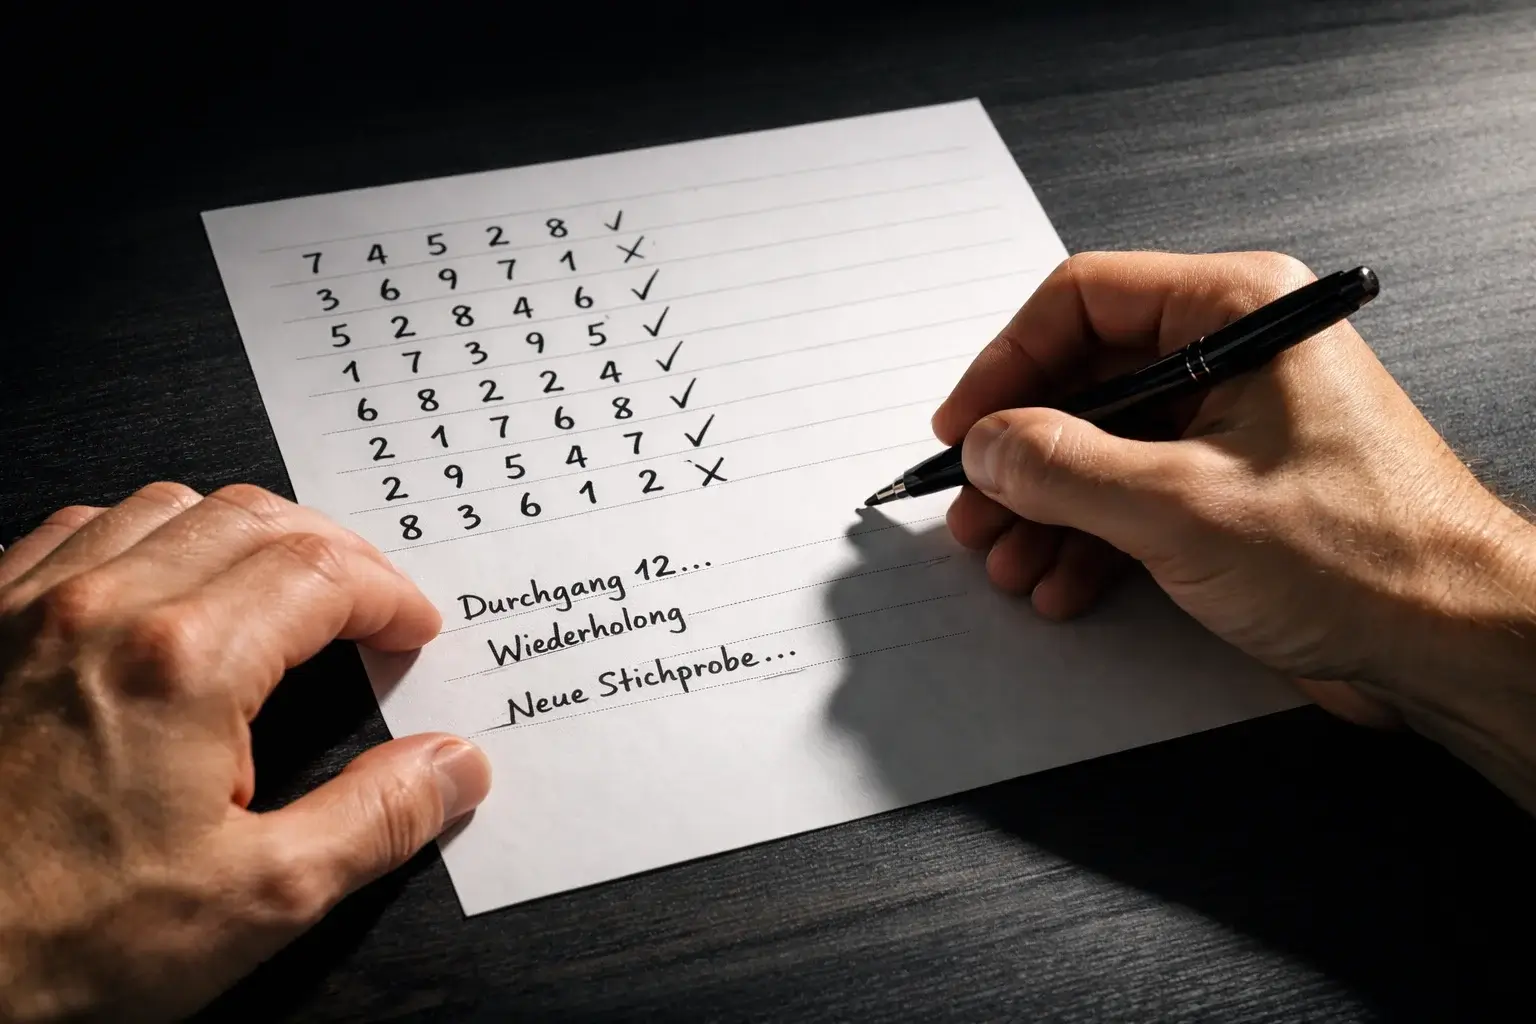 7 4 5 2 8 ✓
3 6 9 7 1 ✗
5 2 8 4 6 ✓
1 7 3 9 5 ✓
6 8 2 2 4 ✓
2 1 7 6 8 ✓
2 9 5 4 7 ✓
8 3 6 1 2 ✗
Durchgang 12...
Wiederholong
Neue Stichprobe...